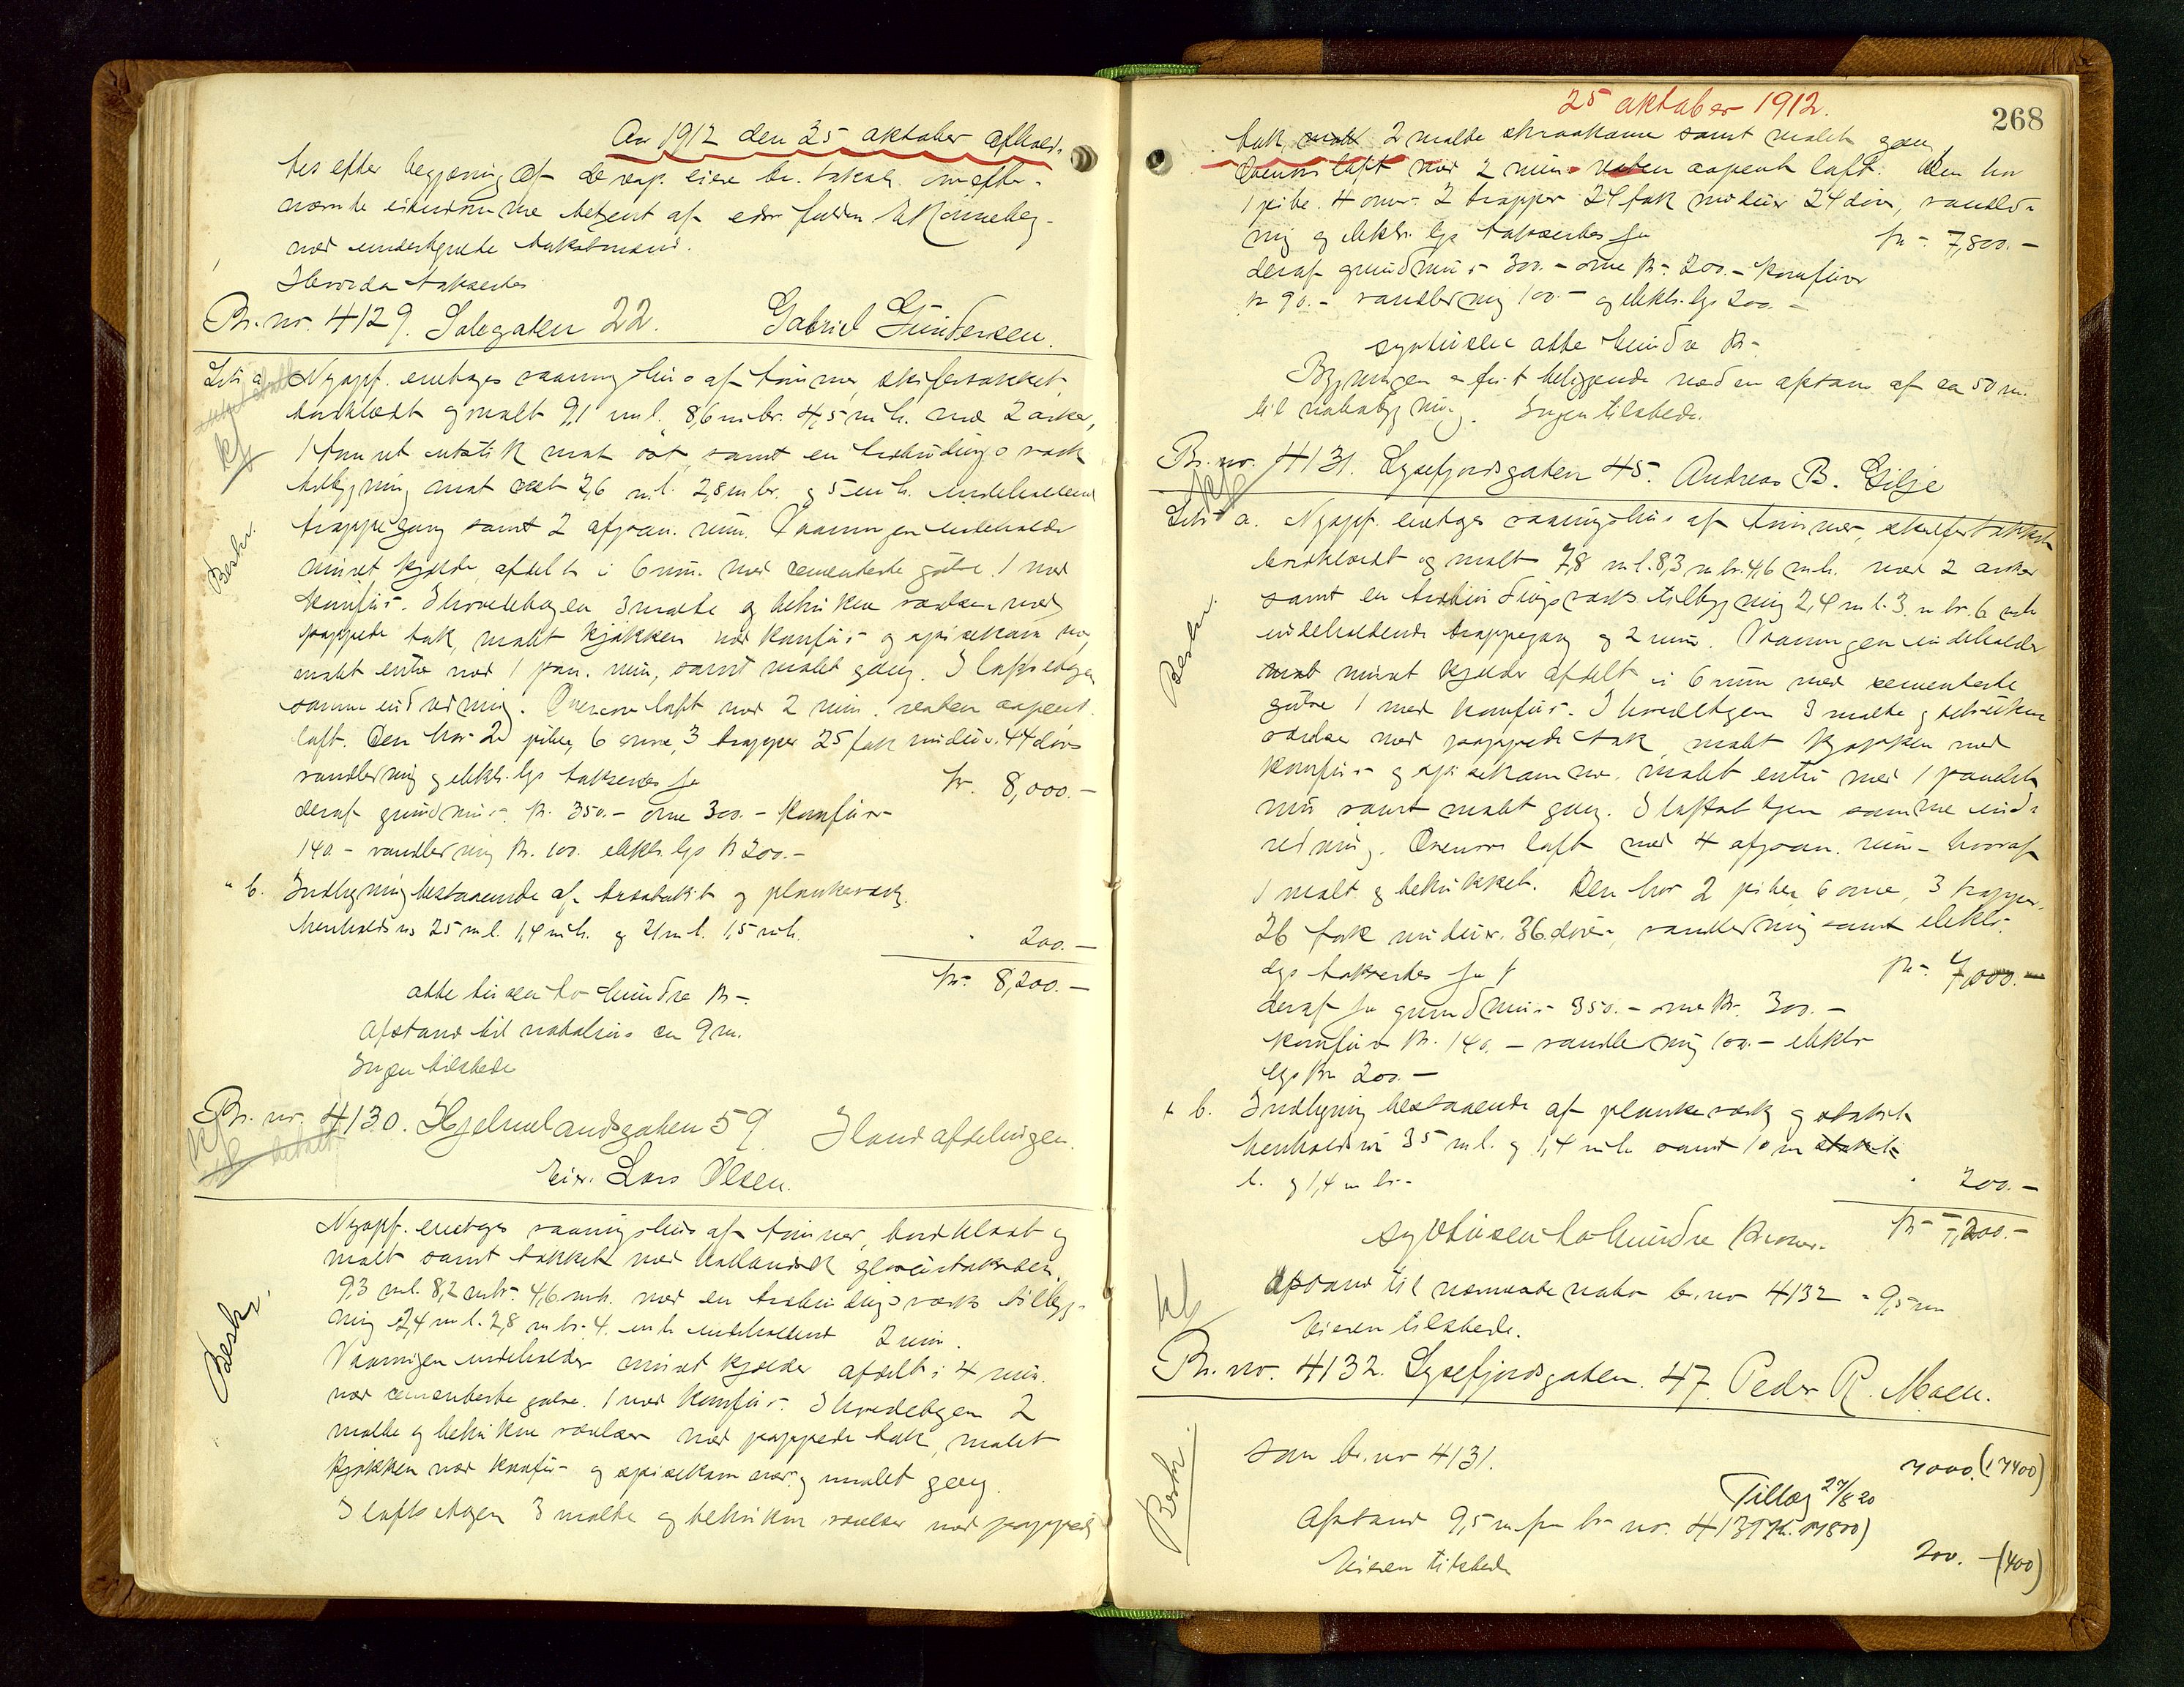 An 1912 den 25 oktober afhold-
tes efter begjæring af de resp. eiere br. takst. over efter-
nævnte eiendomme betjent af edsv. fuldm. E. Rønneberg
med undertegnede takstmænd.
Hvorda taksertes
Br. nr. 4129. Solegaten 22. Gabriel Gundersen.
Litr a Nyopf. enetages vaaningshus af tømmer, skifertækket,
bordklædt og malt 9,1 m l. 8,6 m br. 4,5 m h. med 2 arker,
1 utstik mot øst, samt en bindingsværk
tilbygning mot øst 2,6 m l. 2,8 m br. og 5 m h. indeholdend
trappegang samt 2 afpan. rum. Vaaningen indeholder
muret kjelder, afdelt i 6 rum. med cementerte gulve. 1 med
komfur. I hovedetagen 3 malte og betrukne værelser med
pappede tak, malt kjøkken med komfur og spisekammer,
malt entre med 1 pan. rum, samt malet gang. I loftsetagen
samme indredning. Ovenover loft med 2 rum. resten aapent
loft. Den har 2 piber, 6 ovne, 3 trapper 25 fak vinduer. 44 døre
vandledning og elektr. lys takseres for kr. 8,000.-
deraf grundmur kr. 350.- ovne 300.- komfur
140.- vandledning kr. 100. elektr. lys kr 200.-
" b. Indhegning bestaaende af stakit og plankeværk
henholdsvis 25 m l. 1,4 m h. og 21 m l. 1,5 m h. 200.-
kr. 8,200.-
otte tusen to hundre kr.
Afstand til nabohus ca 9 m.
Ingen tilstede
Br. nr. 4130. Hjelmelandsgaten 59. I landafdelingen.
Eier. Lars Olsen.
Nyopf. enetages vaaningshus af tømmer, bordklædt og
malt samt tækket med hollandsk glasurtaksten.
9,3 m l. 8,2 m br. 4,6 m h. med en bindingsværks tilbyg-
ning 2,4 m l. 2,8 m br. 4. m h. indeholdend 2 rum.
Vaaningen indeholder muret kjelder afdelt i 4 rum.
med cementerte gulve. 1 med komfur. I hovedetagen 2
malte og betrukne værelser med pappede tak, malet
kjøkken med komfur og spisekammer og malet gang.
I loftsetagen 3 malte og betrukne værelser med pappede
Beskr.
Beskr.
25 oktober 1912.
268
tak, 2 malte skraakamre samt malet gang,
Ovenover loft med 2 rum. resten aapent loft. Den har
1 pibe. 4 ovner. 2 trapper 24 fak vinduer 24 døre, vandled-
ning og elektr. lys takseres for kr. 7,800.-
deraf grundmur 300.- ovne kr. 200.- komfur
kr 90.- vandledning 100.- og elektr. lys 200.-
syvtusen otte hundre kr.
Bygningen er frit beliggende med en afstand af ca 50 m.
til nabobygning. Ingen tilstede.
Br. nr. 4131. Lysefjordsgaten 45. Andreas B. Lilje
Litr a. Nyopf. enetages vaaningshus af tømmer, skifertækket
bordklædt og malt 7,8 m l. 8,3 m br. 4,6 m h. med 2 arker
samt en bindingsværks tilbygning 2,4 m l. 3 m br. 6 m h
indeholdende trappegang og 2 rum. Vaaningen indeholder
muret kjelder afdelt i 6 rum med cementerte
gulve 1 med komfur. I hovedetagen 3 malte og betrukne
værelser med pappede tak, malt kjøkken med
komfur og spisekammer. malet entre med 1 panelet
rum samt malt gang. I loftsetagen samme ind-
redning. Ovenover loft med 4 afpan. rum hvoraf
1 malt og betrukket. Den har 2 piber 6 ovne, 3 trapper.
26 fak vinduer. 36 døre, vandledning samt elektr.
lys takseres for kr. 7,000.-
deraf for grundmur 350.- ovne kr. 300.-
komfur kr. 140.- vandledning 100.- elektr
lys kr 200.-
" b. Indhegning bestaaende af plankeværk og stakit
henholdsvis 35 m l. og 1,4 m h samt 10 m
l. og 1,4 m br. 200.-
kr 7,200.-
syvtusen to hundre kroner.
Afstand til nærmeste nabo br. nr 4132 = 9,5 m
Eieren tilstede.
Br. nr. 4132. Lysefjordsgaten. 47. Peder R. Moen.
som br. nr 4131. 7000. (17400)
Tillæg 27/8 20
Afstand 9,5 m fra br nr. 4131 (kr. 17800)
200.- (400)
Eieren tilstede
Beskr.
Beskr.